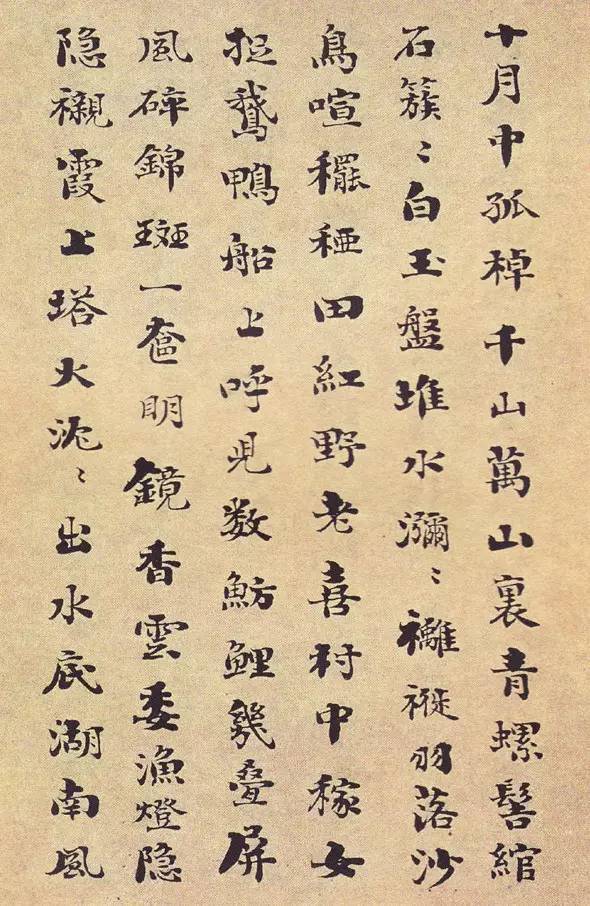 十月中孤棹千山萬山裏青螺髻綰
石簇〻白玉盤堆水瀰〻褵褷羽落沙
鳥喧䆉稏田紅野老喜村中稼女
捉鵝鴨船上呼兒数魴鯉幾疊屏
風碎錦斑一奩明鏡香雲委漁燈隐
隐襯霞上塔火沉〻出水底湖南風